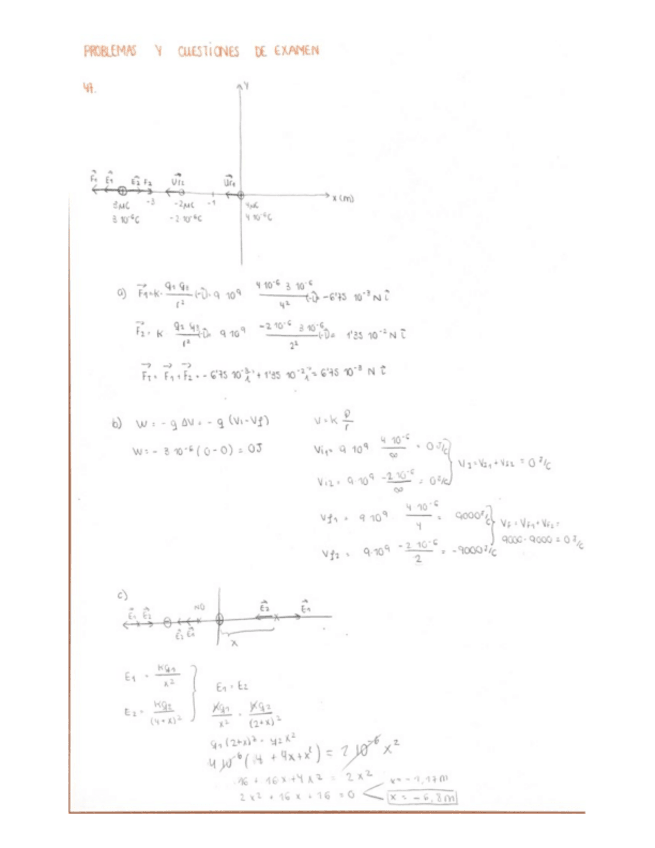 PROBLEMAS Y CUESTIONES DE EXAMEN
47.
Y
F₁ E₁ E₂ F₂
x (m)
-3 -1
3μC -2μC 4μC
3·10⁻⁶C -2·10⁻⁶C 4·10⁻⁶C
a) F₁ = K · q₁ q₁ / r² (-i) = 9·10⁹ 4·10⁻⁶ 3·10⁻⁶ / 4² (-i) = -6'75·10⁻³ N i
F₂ = K q₂ q₃ / r² (-i) = 9·10⁹ -2·10⁻⁶ 3·10⁻⁶ / 2² (-i) = 1'35·10⁻² N i
F₁ + F₂ = -6'75·10⁻³ i + 1'35·10⁻² i = 6'75·10⁻³ N i
b) W = -q ΔV = -q (Vi - Vf)
V = K Q / r
W = -3·10⁻⁶ (0-0) = 0J
Vi₁ = 9·10⁹ 4·10⁻⁶ / ∞ = 0 J/C
Vi₂ = 9·10⁹ -2·10⁻⁶ / ∞ = 0 J/C
= 0 J/C
Vf₁ = 9·10⁹ 4·10⁻⁶ / 4 = 9000 J/C
Vf₂ = 9·10⁹ -2·10⁻⁶ / 2 = -9000 J/C
Vf = Vf₁ + Vf₂ =
9000 - 9000 = 0 J/C
c)
NO
E₁ E₂ E₂ E₁ E₂ E₁
x
E₁ = Kq₁ / x²
E₂ = Kq₂ / (4+x)²
E₁ = E₂
Kq₁ / x² = Kq₂ / (2+x)²
q₁ (2+x)² = q₂ x²
4·10⁻⁶ (4 + 4x + x²) = 2·10⁻⁶ x²
16 + 16x + 4x² = 2x²
2x² + 16x + 16 = 0
x = -1,17m
x = -6,8m